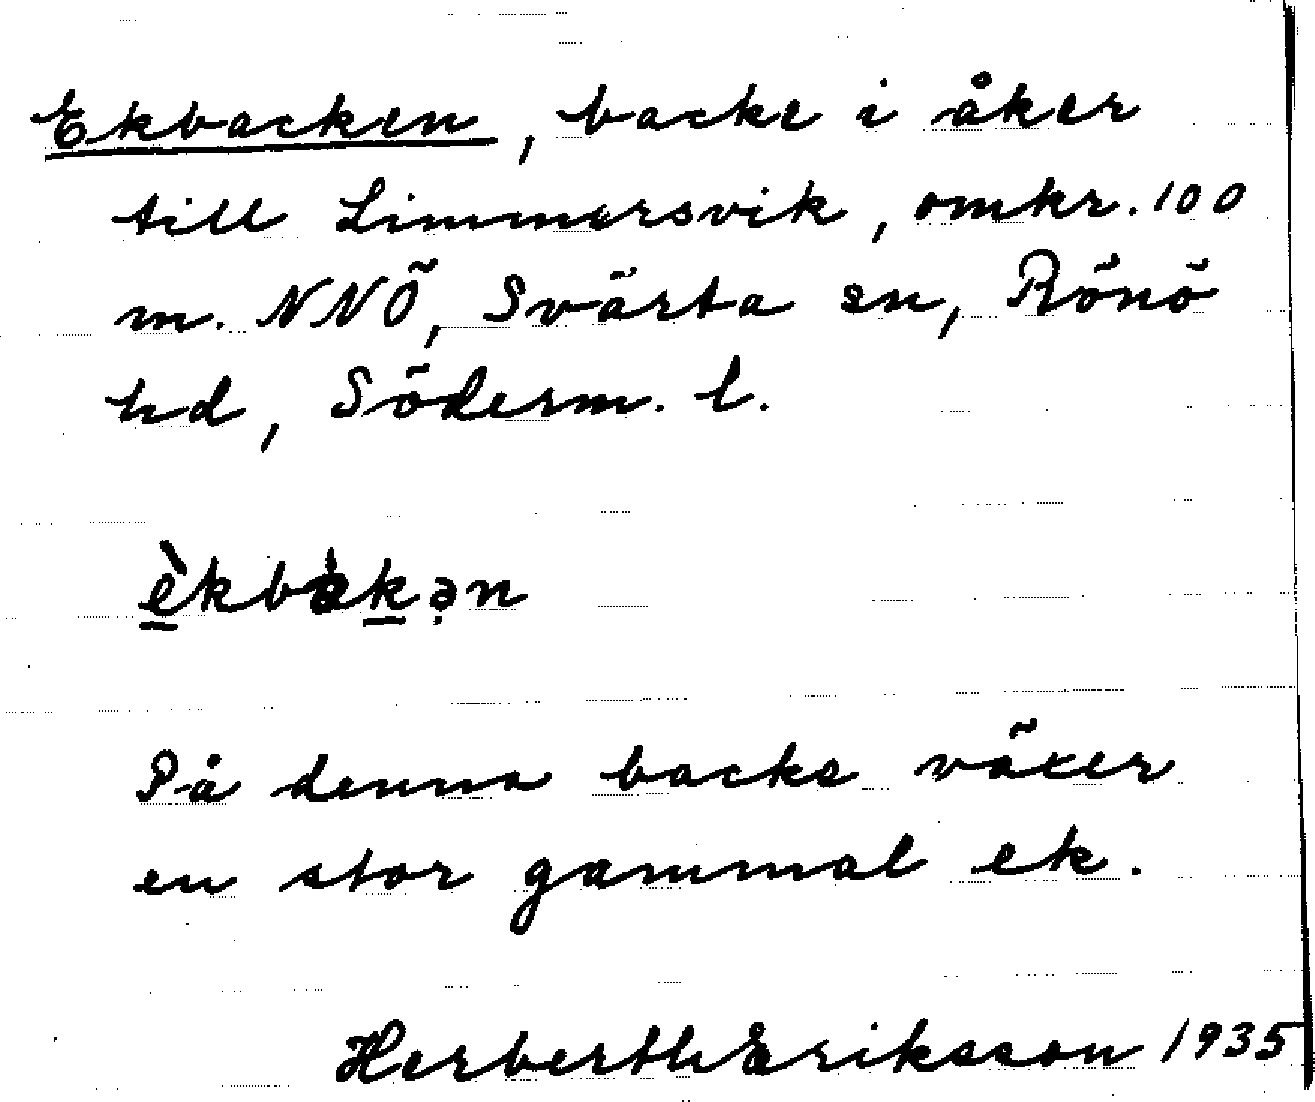 Ekbacken, backe i åker
till Limmersvik, omkr. 100
m. NNÖ, Svärta sn, Rönö
hd, Söderm. l.
èkbàkən
På denna backe växer
en stor gammal ek.
Herberth Eriksson 1935